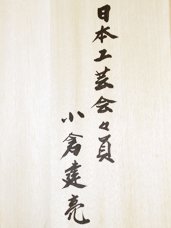 日本工芸会々員
小倉建亮